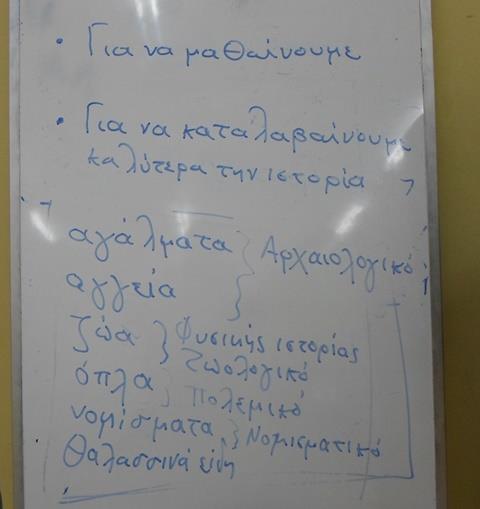 • Για να μαθαίνουμε
• Για να καταλαβαίνουμε
καλύτερα την ιστορία
αγάλματα } Αρχαιολογικό
αγγεία
ζώα } Φυσικής ιστορίας
Ζωολογικό
όπλα } Πολεμικό
νομίσματα } Νομισματικό
Θαλασσινά είδη